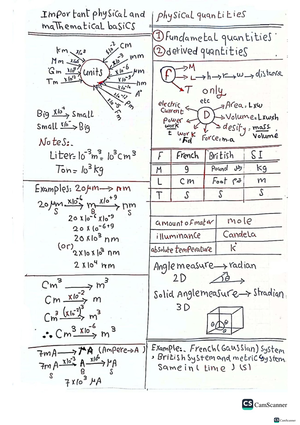 Important physical and
mathematical basics
km
Mm
Gm
Tm
units
Cm
mm
nm
Big Small
Small Big
Notes:
Liter: 10⁻³m³, 10³Cm³
Ton = 10³ kg
Examples: 20μm → nm
20μm m nm
S B S
20 x 10⁻⁶ x 10⁺⁹
20 x 10⁻⁶⁺⁹
20 x 10³ nm
(or)
2 x 10 x 10³ nm
2 x 10⁴ nm
Cm³ → m³
Cm x10⁻² → m
Cm³ → m³
∴ Cm³ x10⁻⁶ → m³
7mA → μA (Ampere → A)
7mA A μA
S B S
7 x 10³ μA
physical quantities
① Fundametal quantities
② derived quantities
F
M
L → h → r → w → distance
T only
etc
D
electric
Current
power
work
Area, Lxw
Volume, Lxwxh
desity, mass
Volume
Force = m.a
F French British SI
M g Pound kg
L Cm Foot m
T S S S
amount of mater mole
illuminance Candela
absolute temperature k
Angle measure → radian
2D
Solid Angle measure → stradian
3D
Examples. French (Gaussian) system
, British System and metric System
Same in (time) (S)
CS CamScanner